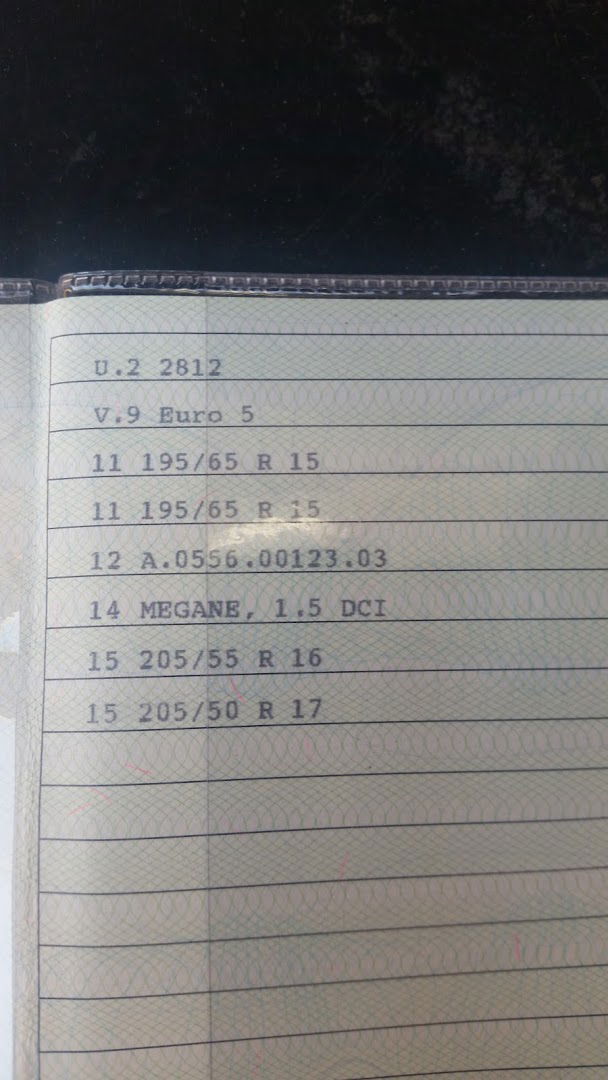 U.2 2812
V.9 Euro 5
11 195/65 R 15
11 195/65 R 15
12 A.0556.00123.03
14 MEGANE, 1.5 DCI
15 205/55 R 16
15 205/50 R 17